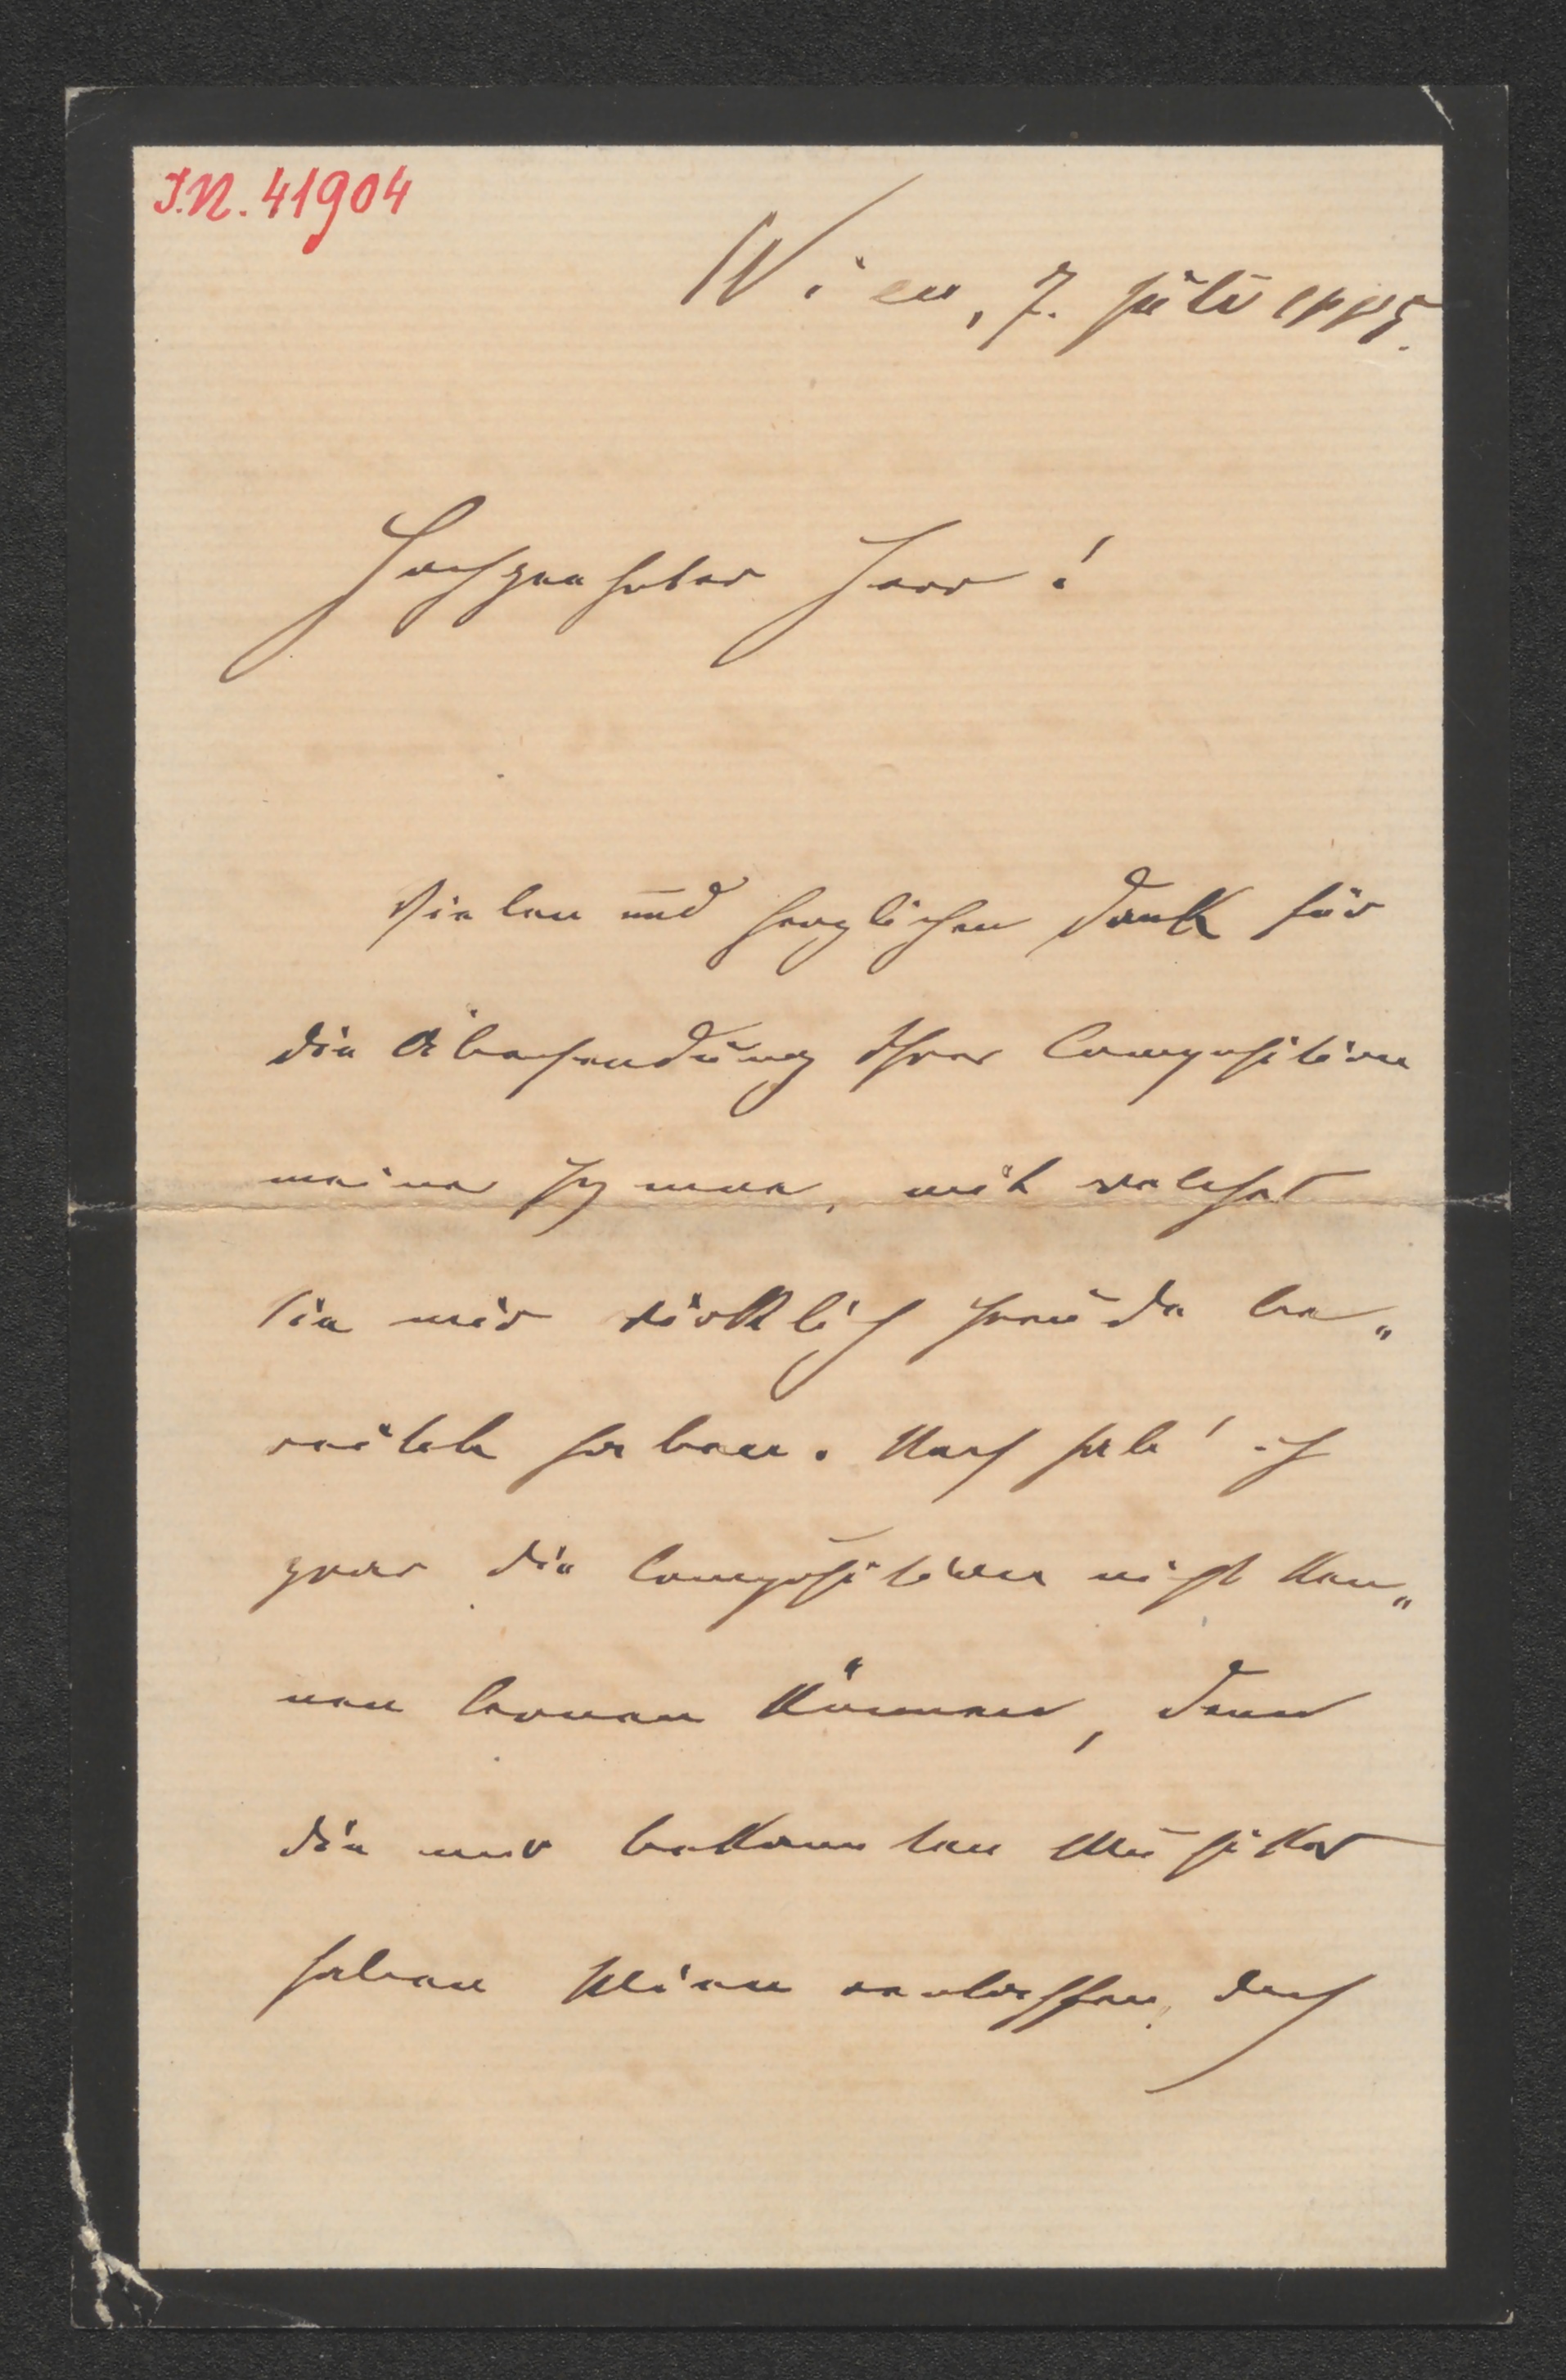 I.N. 41904
Wien, 7. Juli 1885.
Hochgeehrter Herr!
Vielen und herzlichen Dank für
die Übersendung Ihrer Composition
meiner Hymne, mit welcher
Sie mir wirklich Freude be„
reitet haben. Noch hab' ich
zwar die Composition nicht ken„
nen lernen können, denn
die mir bekannten Musiker
haben Wien verlassen, doch